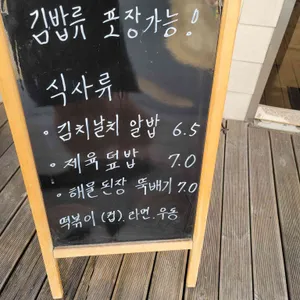 김밥류 포장가능!
식사류
• 김치날치 알밥 6.5
• 제육덮밥 7.0
• 해물된장 뚝배기 7.0
떡볶이 (컵). 라면. 우동